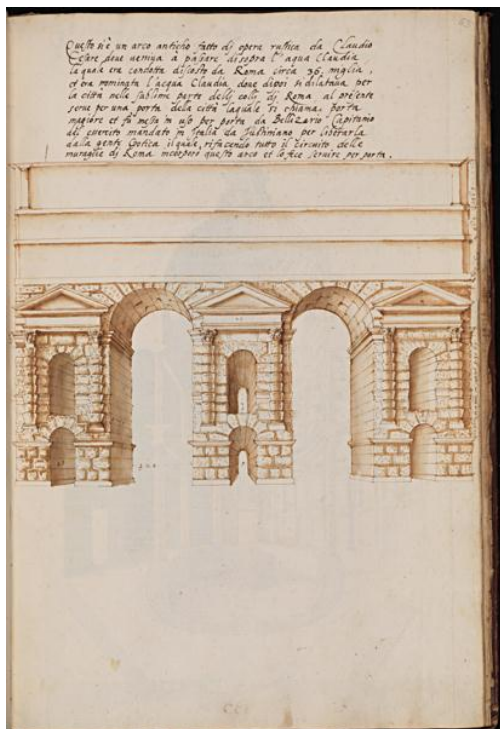 Questo si è un arco anticho fatto dj opera rustica da Claudio
Cesare doue ueniua a passare disopra l'aqua Claudia
la quale era condotta discosto da Roma circa 36 miglia,
et era nominata l'acqua Claudia doue dipoi si dilataua per
la città nella sublime parte dellj collj dj Roma al presente
serue per una porta della città laquale si chiama porta
magiore et fu messa in uso per porta da Bellezario Capitanio
del exercito mandato in Italia da Justiniano per liberarla
dalla gente Gotica il quale, rifacendo tutto il circuito delle
muraglie dj Roma incorporò questo arco et lo fece seruire per porta.